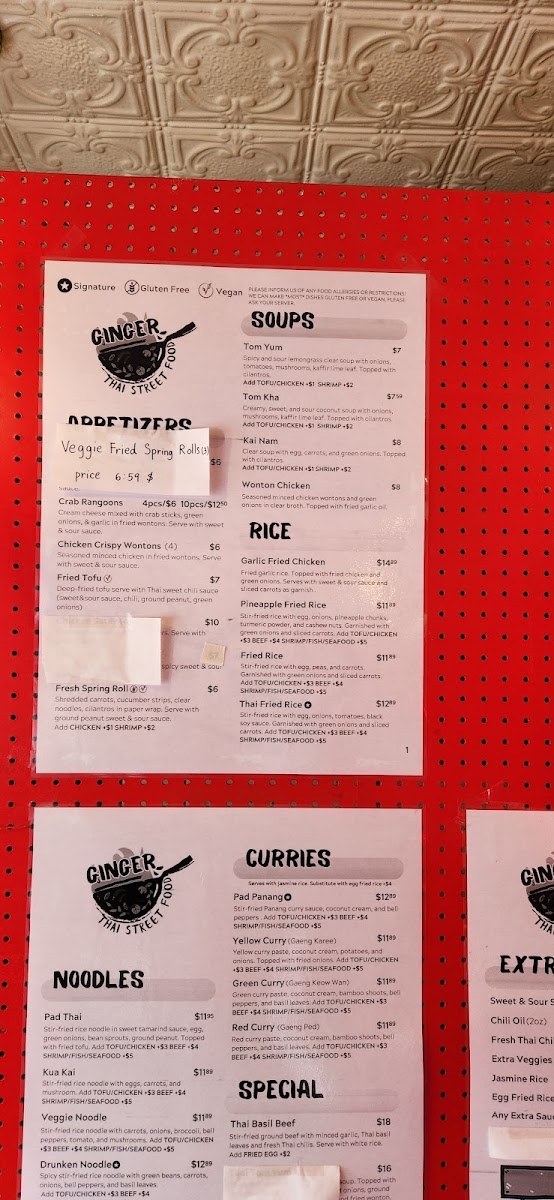 Signature Gluten Free Vegan
PLEASE INFORM US OF ANY FOOD ALLERGIES OR RESTRICTIONS!
WE CAN MAKE *MOST* DISHES GLUTEN FREE OR VEGAN, PLEASE
ASK YOUR SERVER.
GINGER
THAI STREET FOOD
APPETIZERS
Veggie Fried Spring Rolls(3)
price 6.59 $
$6
sauce.
Crab Rangoons 4pcs/$6 10pcs/$12⁵⁰
Cream cheese mixed with crab sticks, green
onions, & garlic in fried wontons. Serve with sweet
& sour sauce.
Chicken Crispy Wontons (4) $6
Seasoned minced chicken in fried wontons. Serve
with sweet & sour sauce.
Fried Tofu $7
Deep-fried tofu serve with Thai sweet chili sauce
(sweet&sour sauce, chili, ground peanut, green
onions)
$10
Serve with
$7
spicy sweet & sour
Fresh Spring Roll $6
Shredded carrots, cucumber strips, clear
noodles, cilantro in paper wrap. Serve with
ground peanut sweet & sour sauce.
Add CHICKEN +$1 SHRIMP +$2
SOUPS
Tom Yum $7
Spicy and sour lemongrass clear soup with onions,
tomatoes, mushrooms, kaffir lime leaf. Topped with
cilantros.
Add TOFU/CHICKEN +$1 SHRIMP +$2
Tom Kha $7⁵⁹
Creamy, sweet, and sour coconut soup with onions,
mushrooms, kaffir lime leaf. Topped with cilantros.
Add TOFU/CHICKEN +$1 SHRIMP +$2
Kai Nam $8
Clear soup with egg, carrots, and green onions. Topped
with cilantro.
Add TOFU/CHICKEN +$1 SHRIMP +$2
Wonton Chicken $8
Seasoned minced chicken wontons and green
onions in clear broth. Topped with fried garlic oil.
RICE
Garlic Fried Chicken $14⁸⁹
Fried garlic rice. Topped with fried chicken and
green onions. Serves with sweet & sour sauce and
sliced carrots as garnish.
Pineapple Fried Rice $11⁸⁹
Stir-fried rice with egg, onions, pineapple chunks,
turmeric powder, and cashew nuts. Garnished with
green onions and sliced carrots. Add TOFU/CHICKEN
+$3 BEEF +$4 SHRIMP/FISH/SEAFOOD +$5
Fried Rice $11⁸⁹
Stir-fried rice with egg, peas, and carrots.
Garnished with green onions and sliced carrots.
Add TOFU/CHICKEN +$3 BEEF +$4
SHRIMP/FISH/SEAFOOD +$5
Thai Fried Rice $12⁸⁹
Stir-fried rice with egg, onions, tomatoes, black
soy sauce. Garnished with green onions and sliced
carrots. Add TOFU/CHICKEN +$3 BEEF +$4
SHRIMP/FISH/SEAFOOD +$5
1
GINGER
THAI STREET FOOD
NOODLES
Pad Thai $11⁹⁵
Stir-fried rice noodle in sweet tamarind sauce, egg,
green onions, bean sprouts, ground peanut. Topped
with fried tofu. Add TOFU/CHICKEN +$3 BEEF +$4
SHRIMP/FISH/SEAFOOD +$5
Kua Kai $11⁸⁹
Stir-fried rice noodle with eggs, carrots, and
mushroom. Add TOFU/CHICKEN +$3 BEEF +$4
SHRIMP/FISH/SEAFOOD +$5
Veggie Noodle $11⁸⁹
Stir-fried rice noodle with carrots, onions, broccoli, bell
peppers, tomato, and mushrooms. Add TOFU/CHICKEN
+$3 BEEF +$4 SHRIMP/FISH/SEAFOOD +$5
Drunken Noodle $12⁸⁹
Spicy stir-fried rice noodle with green beans, carrots,
onions, bell peppers, and basil leaves.
Add TOFU/CHICKEN +$3 BEEF +$4
CURRIES
Serves with jasmine rice. Substitute with egg fried rice +$4
Pad Panang $12⁸⁹
Stir-fried Panang curry sauce, coconut cream, and bell
peppers. Add TOFU/CHICKEN +$3 BEEF +$4
SHRIMP/FISH/SEAFOOD +$5
Yellow Curry (Gaeng Karee) $11⁸⁹
Yellow curry paste, coconut cream, potatoes, and
onions. Topped with fried onions. Add TOFU/CHICKEN
+$3 BEEF +$4 SHRIMP/FISH/SEAFOOD +$5
Green Curry (Gaeng Keow Wan) $11⁸⁹
Green curry paste, coconut cream, bamboo shoots, bell
peppers, and basil leaves. Add TOFU/CHICKEN +$3
BEEF +$4 SHRIMP/FISH/SEAFOOD +$5
Red Curry (Gaeng Ped) $11⁸⁹
Red curry paste, coconut cream, bamboo shoots, bell
peppers, and basil leaves. Add TOFU/CHICKEN +$3
BEEF +$4 SHRIMP/FISH/SEAFOOD +$5
SPECIAL
Thai Basil Beef $18
Stir-fried ground beef with minced garlic, Thai basil
leaves and fresh Thai chilis. Serve with white rice.
Add FRIED EGG +$2
$16
soup. Topped with
onions, ground
EXTR
Sweet & Sour S
Chili Oil (2oz)
Fresh Thai Chi
Extra Veggies
Jasmine Rice
Egg Fried Rice
Any Extra Sauc